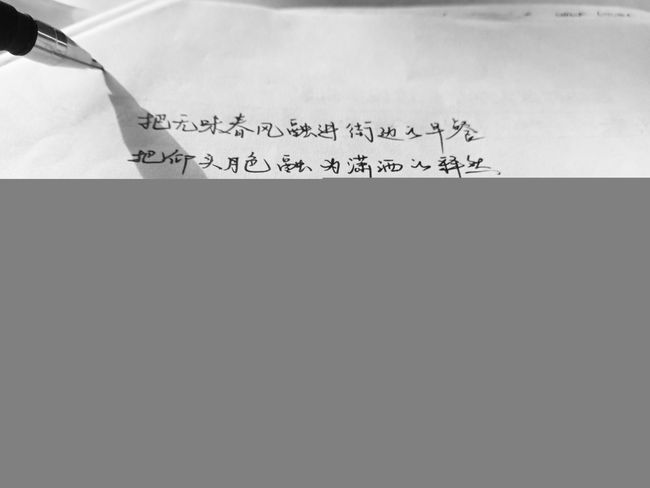 把无味春风融进街边的早餐
把仰头月色融为潇洒的释然